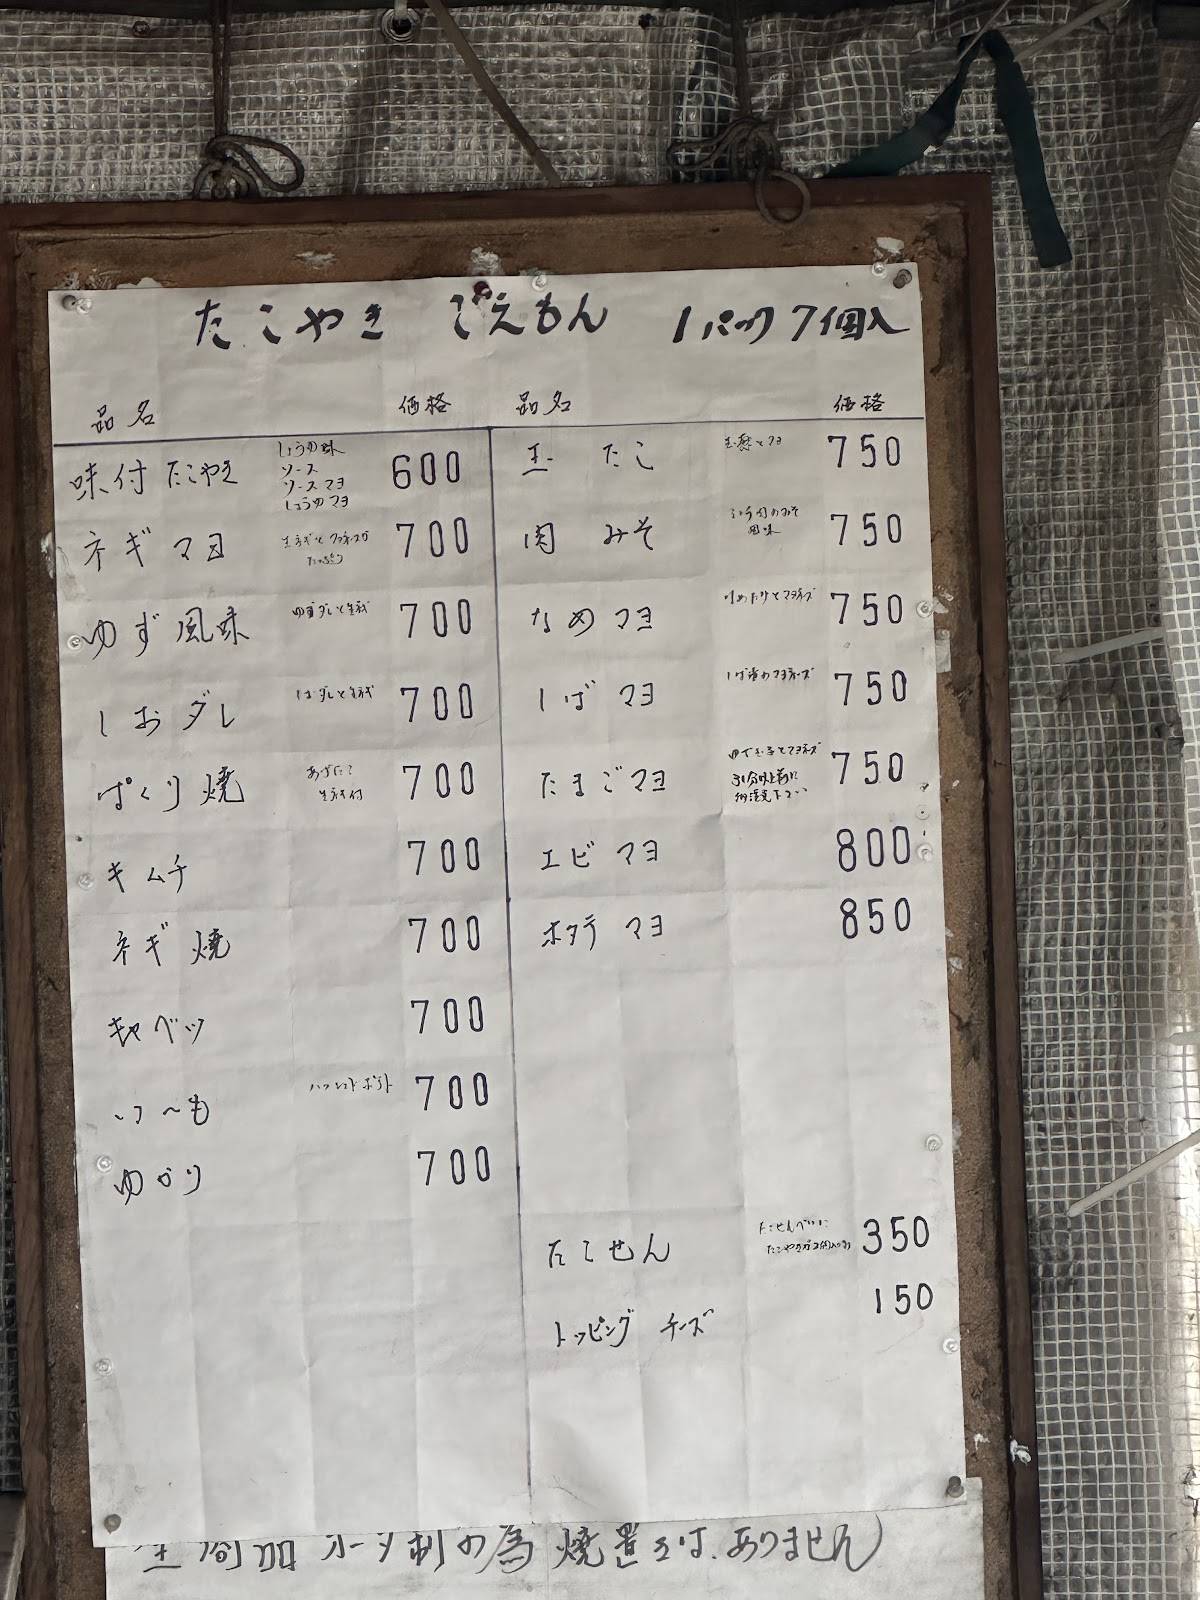 たこやき ごえもん 1パック7個入
品名 価格 品名 価格
味付たこやき しょうゆ味 600
ソース
ソースマヨ
しょうゆマヨ
ネギマヨ 生ネギとマヨネーズがたっぷり 700
ゆず風味 ゆずダレと生ネギ 700
しおダレ しおダレと生ネギ 700
ぱくり焼 700
生ネギ付
キムチ 700
ネギ焼 700
キャベツ 700
いつ〜も ハッシュドポテト 700
ゆかり 700
玉たこ 750
肉みそ 750
風味
なめマヨ なめたけとマヨネーズ 750
しばマヨ しば漬のマヨネーズ 750
たまごマヨ ゆで玉子とマヨネーズ 750
御注文下さい
エビマヨ 800
ホタテマヨ 850
たこせん たこせんべいに 350
たこやきが2個入り
トッピング チーズ 150
オーダー制の為 焼置きは、ありません